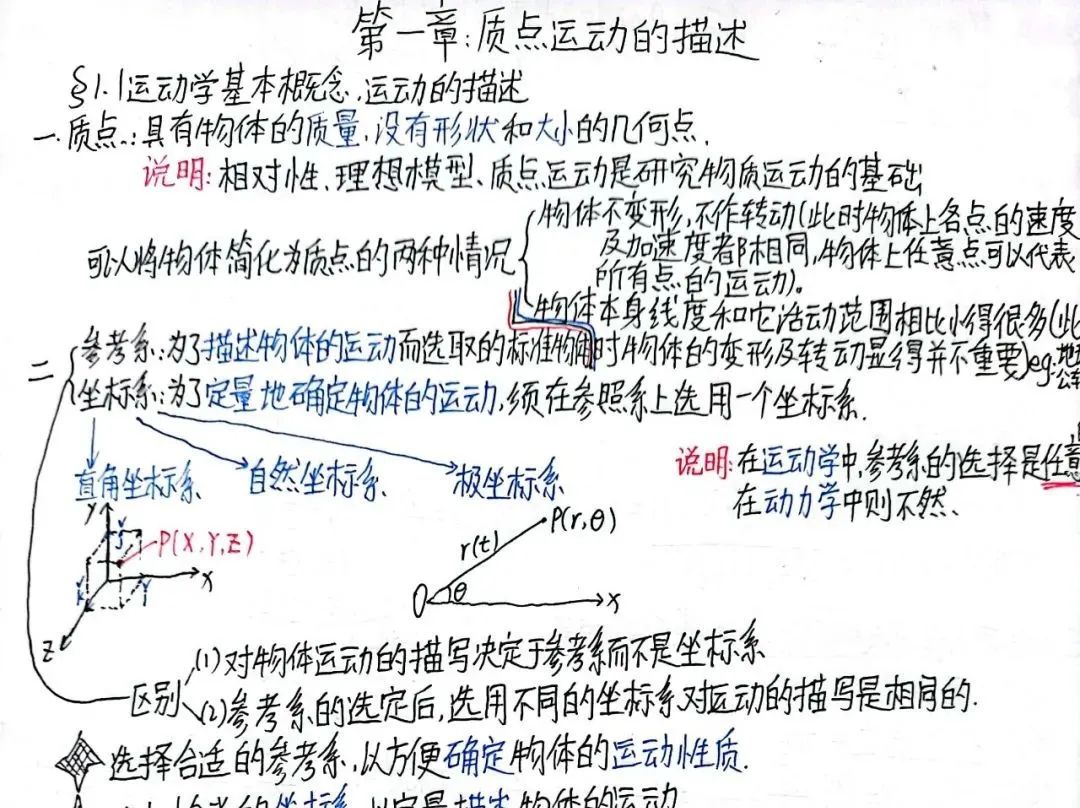 第一章:质点运动的描述
§1.1运动学基本概念.运动的描述
一.质点.:具有物体的质量,没有形状和大小的几何点.
说明:相对性、理想模型、质点运动是研究物质运动的基础
可以将物体简化为质点的两种情况
物体不变形,不作转动(此时物体上各点的速度
及加速度都相同,物体上任意点可以代表
所有点的运动)。
物体本身线度和它活动范围相比小得很多(此
时物体的变形及转动显得并不重要)eg:地
公
二
参考系:为了描述物体的运动而选取的标准物
坐标系:为了定量地确定物体的运动,须在参照系上选用一个坐标系.
直角坐标系 自然坐标系 极坐标系
说明:在运动学中,参考系的选择是任意
在动力学中则不然、
Y
P(X,Y,Z)
X
Z
P(r,θ)
r(t)
O θ X
区别
(1)对物体运动的描写决定于参考系而不是坐标系
(2)参考系的选定后,选用不同的坐标系对运动的描写是相同的.
选择合适的参考系,以方便确定物体的运动性质.
坐标系,以定量描述物体的运动